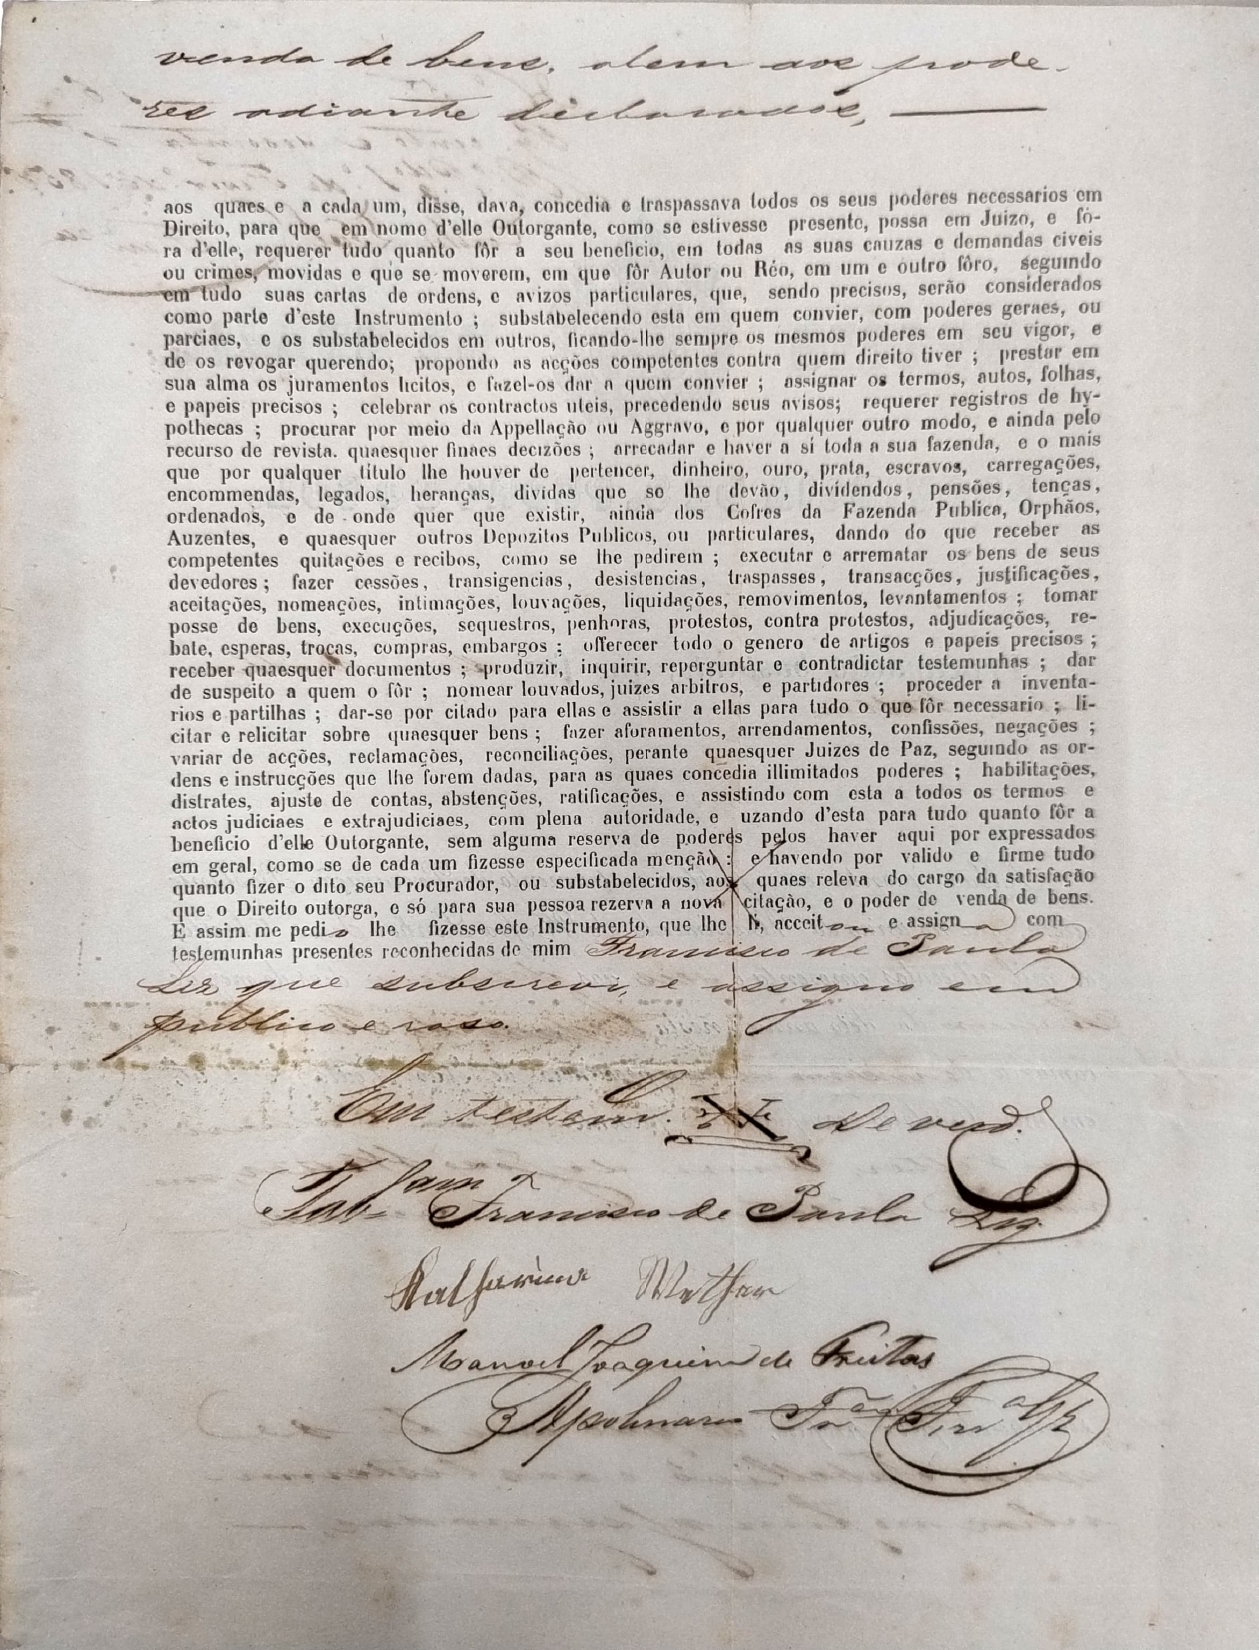 venda de bens, alem aos pode-
res adiante declarados,
aos quaes e a cada um, disse, dava, concedia e traspassava todos os seus poderes necessarios em
Direito, para que em nome d'elle Outorgante, como se estivesse presente, possa em Juizo, e fó-
ra d'elle, requerer tudo quanto fôr a seu beneficio, em todas as suas cauzas e demandas civeis
ou crimes, movidas e que se moverem, em que fôr Autor ou Réo, em um e outro fôro, seguindo
em tudo suas cartas de ordens, e avizos particulares, que, sendo precisos, serão considerados
como parte d'este Instrumento ; substabelecendo esta em quem convier, com poderes geraes, ou
parciaes, e os substabelecidos em outros, ficando-lhe sempre os mesmos poderes em seu vigor, e
de os revogar querendo; propondo as acções competentes contra quem direito tiver ; prestar em
sua alma os juramentos licitos, e fazel-os dar a quem convier ; assignar os termos, autos, folhas,
e papeis precisos ; celebrar os contractos uteis, precedendo seus avisos; requerer registros de hy-
pothecas ; procurar por meio da Appellação ou Aggravo, e por qualquer outro modo, e ainda pelo
recurso de revista. quaesquer finaes decizões ; arrecadar e haver a si toda a sua fazenda, e o mais
que por qualquer titulo lhe houver de pertencer, dinheiro, ouro, prata, escravos, carregações,
encommendas, legados, heranças, dividas que se lhe devão, dividendos, pensões, tenças,
ordenados, e de onde quer que existir, ainda dos Cofres da Fazenda Publica, Orphãos,
Auzentes, e quaesquer outros Depozitos Publicos, ou particulares, dando do que receber as
competentes quitações e recibos, como se lhe pedirem ; executar e arrematar os bens de seus
devedores ; fazer cessões, transigencias, desistencias, traspasses, transacções, justificações,
aceitações, nomeações, intimações, louvações, liquidações, removimentos, levantamentos ; tomar
posse de bens, execuções, sequestros, penhoras, protestos, contra protestos, adjudicações, re-
bate, esperas, trocas, compras, embargos ; offerecer todo o genero de artigos e papeis precisos ;
receber quaesquer documentos ; produzir, inquirir, reperguntar e contradictar testemunhas ; dar
de suspeito a quem o fôr ; nomear louvados, juizes arbitros, e partidores ; proceder a inventa-
rios e partilhas ; dar-se por citado para ellas e assistir a ellas para tudo o que fôr necessario ; li-
citar e relicitar sobre quaesquer bens ; fazer aforamentos, arrendamentos, confissões, negações ;
variar de acções, reclamações, reconciliações, perante quaesquer Juizes de Paz, seguindo as or-
dens e instrucções que lhe forem dadas, para as quaes concedia illimitados poderes ; habilitações,
distrates, ajuste de contas, abstenções, ratificações, e assistindo com esta a todos os termos e
actos judiciaes e extrajudiciaes, com plena autoridade, e uzando d'esta para tudo quanto fôr a
beneficio d'elle Outorgante, sem alguma reserva de poderes pelos haver aqui por expressados
em geral, como se de cada um fizesse especificada menção : e havendo por valido e firme tudo
quanto fizer o dito seu Procurador, ou substabelecidos, aos quaes releva do cargo da satisfação
que o Direito outorga, e só para sua pessoa rezerva a nova citação, e o poder de venda de bens.
E assim me pedio lhe fizesse este Instrumento, que lhe li, acceitou e assigna com
testemunhas presentes reconhecidas de mim Francisco de Paula
que subscrevi, e assigno em
publico e raso.
Em testem. De verd.
Tab Francisco de Paula
Katharina Mether
Manoel Joaquim de Freitas
Apolinario